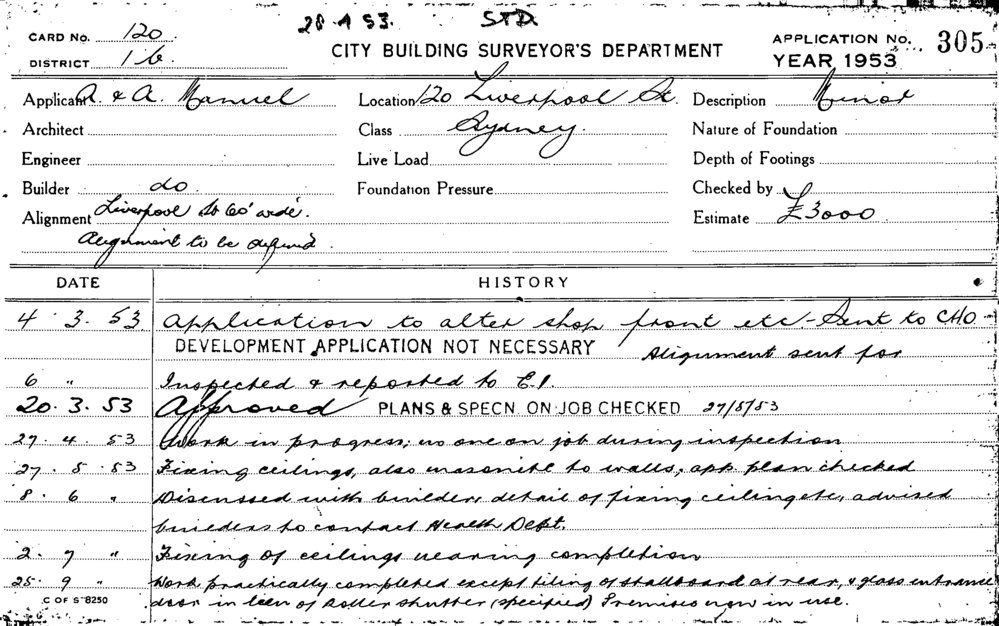 28.4.53. STD.
CARD No. 120
CITY BUILDING SURVEYOR'S DEPARTMENT
APPLICATION No. 305
DISTRICT 16
YEAR 1953
Applicant A. & A. Manuel Location 120 Liverpool St. Description Minor
Architect Class Sydney. Nature of Foundation
Engineer Live Load Depth of Footings
Builder do Foundation Pressure Checked by
Alignment Liverpool St 60' wide. Estimate £3000
Alignment to be defined
DATE HISTORY
4. 3. 53 Application to alter shop front etc - Sent to CHO
DEVELOPMENT APPLICATION NOT NECESSARY Alignment sent for
6 " Inspected & reported to E.I.
20. 3. 53 Approved PLANS & SPECN. ON JOB CHECKED 27/5/53
27. 4. 53 Work in progress; no one on job during inspection
27. 5. 53 Fixing ceilings, also masonite to walls; app. plan checked
8. 6 " Discussed with builders detail of fixing ceiling etc, advised
builders to contact Health Dept.
2. 7 " Fixing of ceilings nearing completion
25. 9 " Work practically completed except tiling of stallboard at rear, & glass entrance
C OF S 8250 door in lieu of roller shutter (specified) Premises now in use.